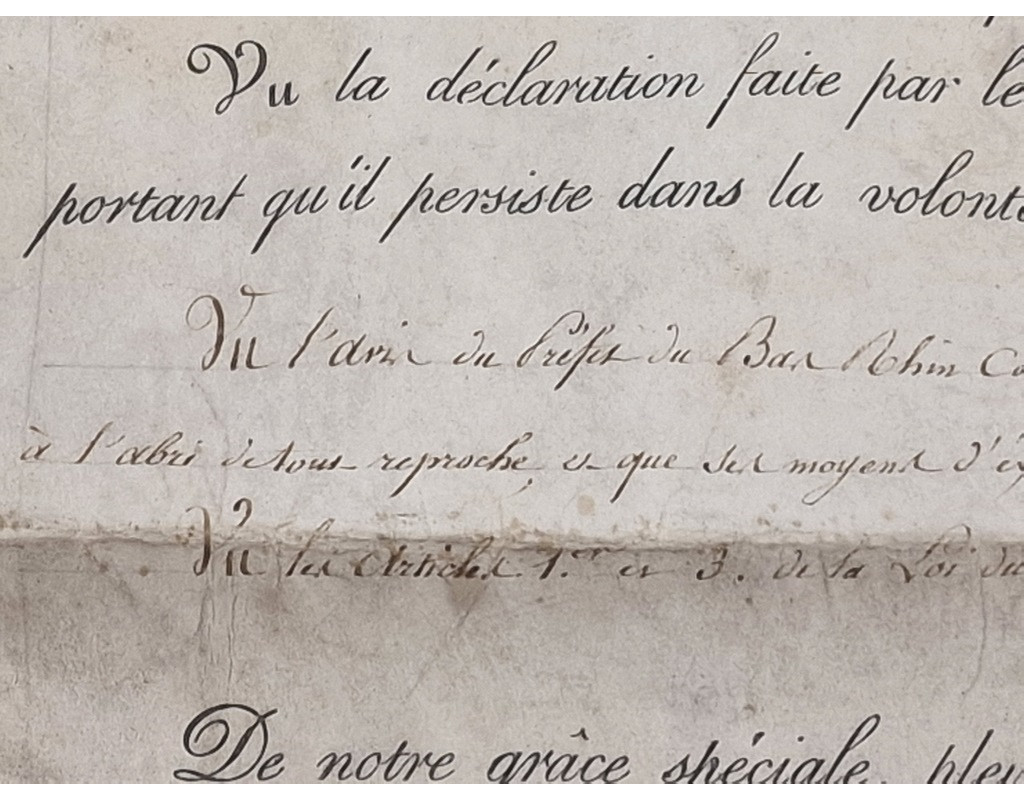 Vu la déclaration faite par le
portant qu'il persiste dans la volonté
Vu l'avis du Préfet du Bas Rhin Co
à l'abri de tous reproche, et que ses moyens d'ex
Vu les Articles 1.er et 3. de la Loi du
De notre grâce spéciale, plei